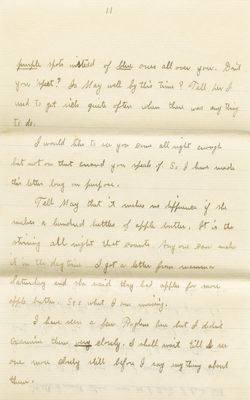 11
purple spots instead of blue ones all over you. Don't
you 'spect? Is May well by this time? Tell her I
used to get sick quite often when there was anything
to do.
I would like to see you come all right enough
but not on that errand you speak of. So I have made
this letter long on purpose.
Tell May that it makes no difference if she
makes a hundred bottles of apple butter. It is the
stirring all night that counts. Any one can make
it in the day time. I got a letter from mamma
Saturday and she said they had apples for more
apple butter. See what I am missing.
I have seen a few here but I didn't
examine them very closely. I shall wait till I see
one more closely still before I say anything about
them.